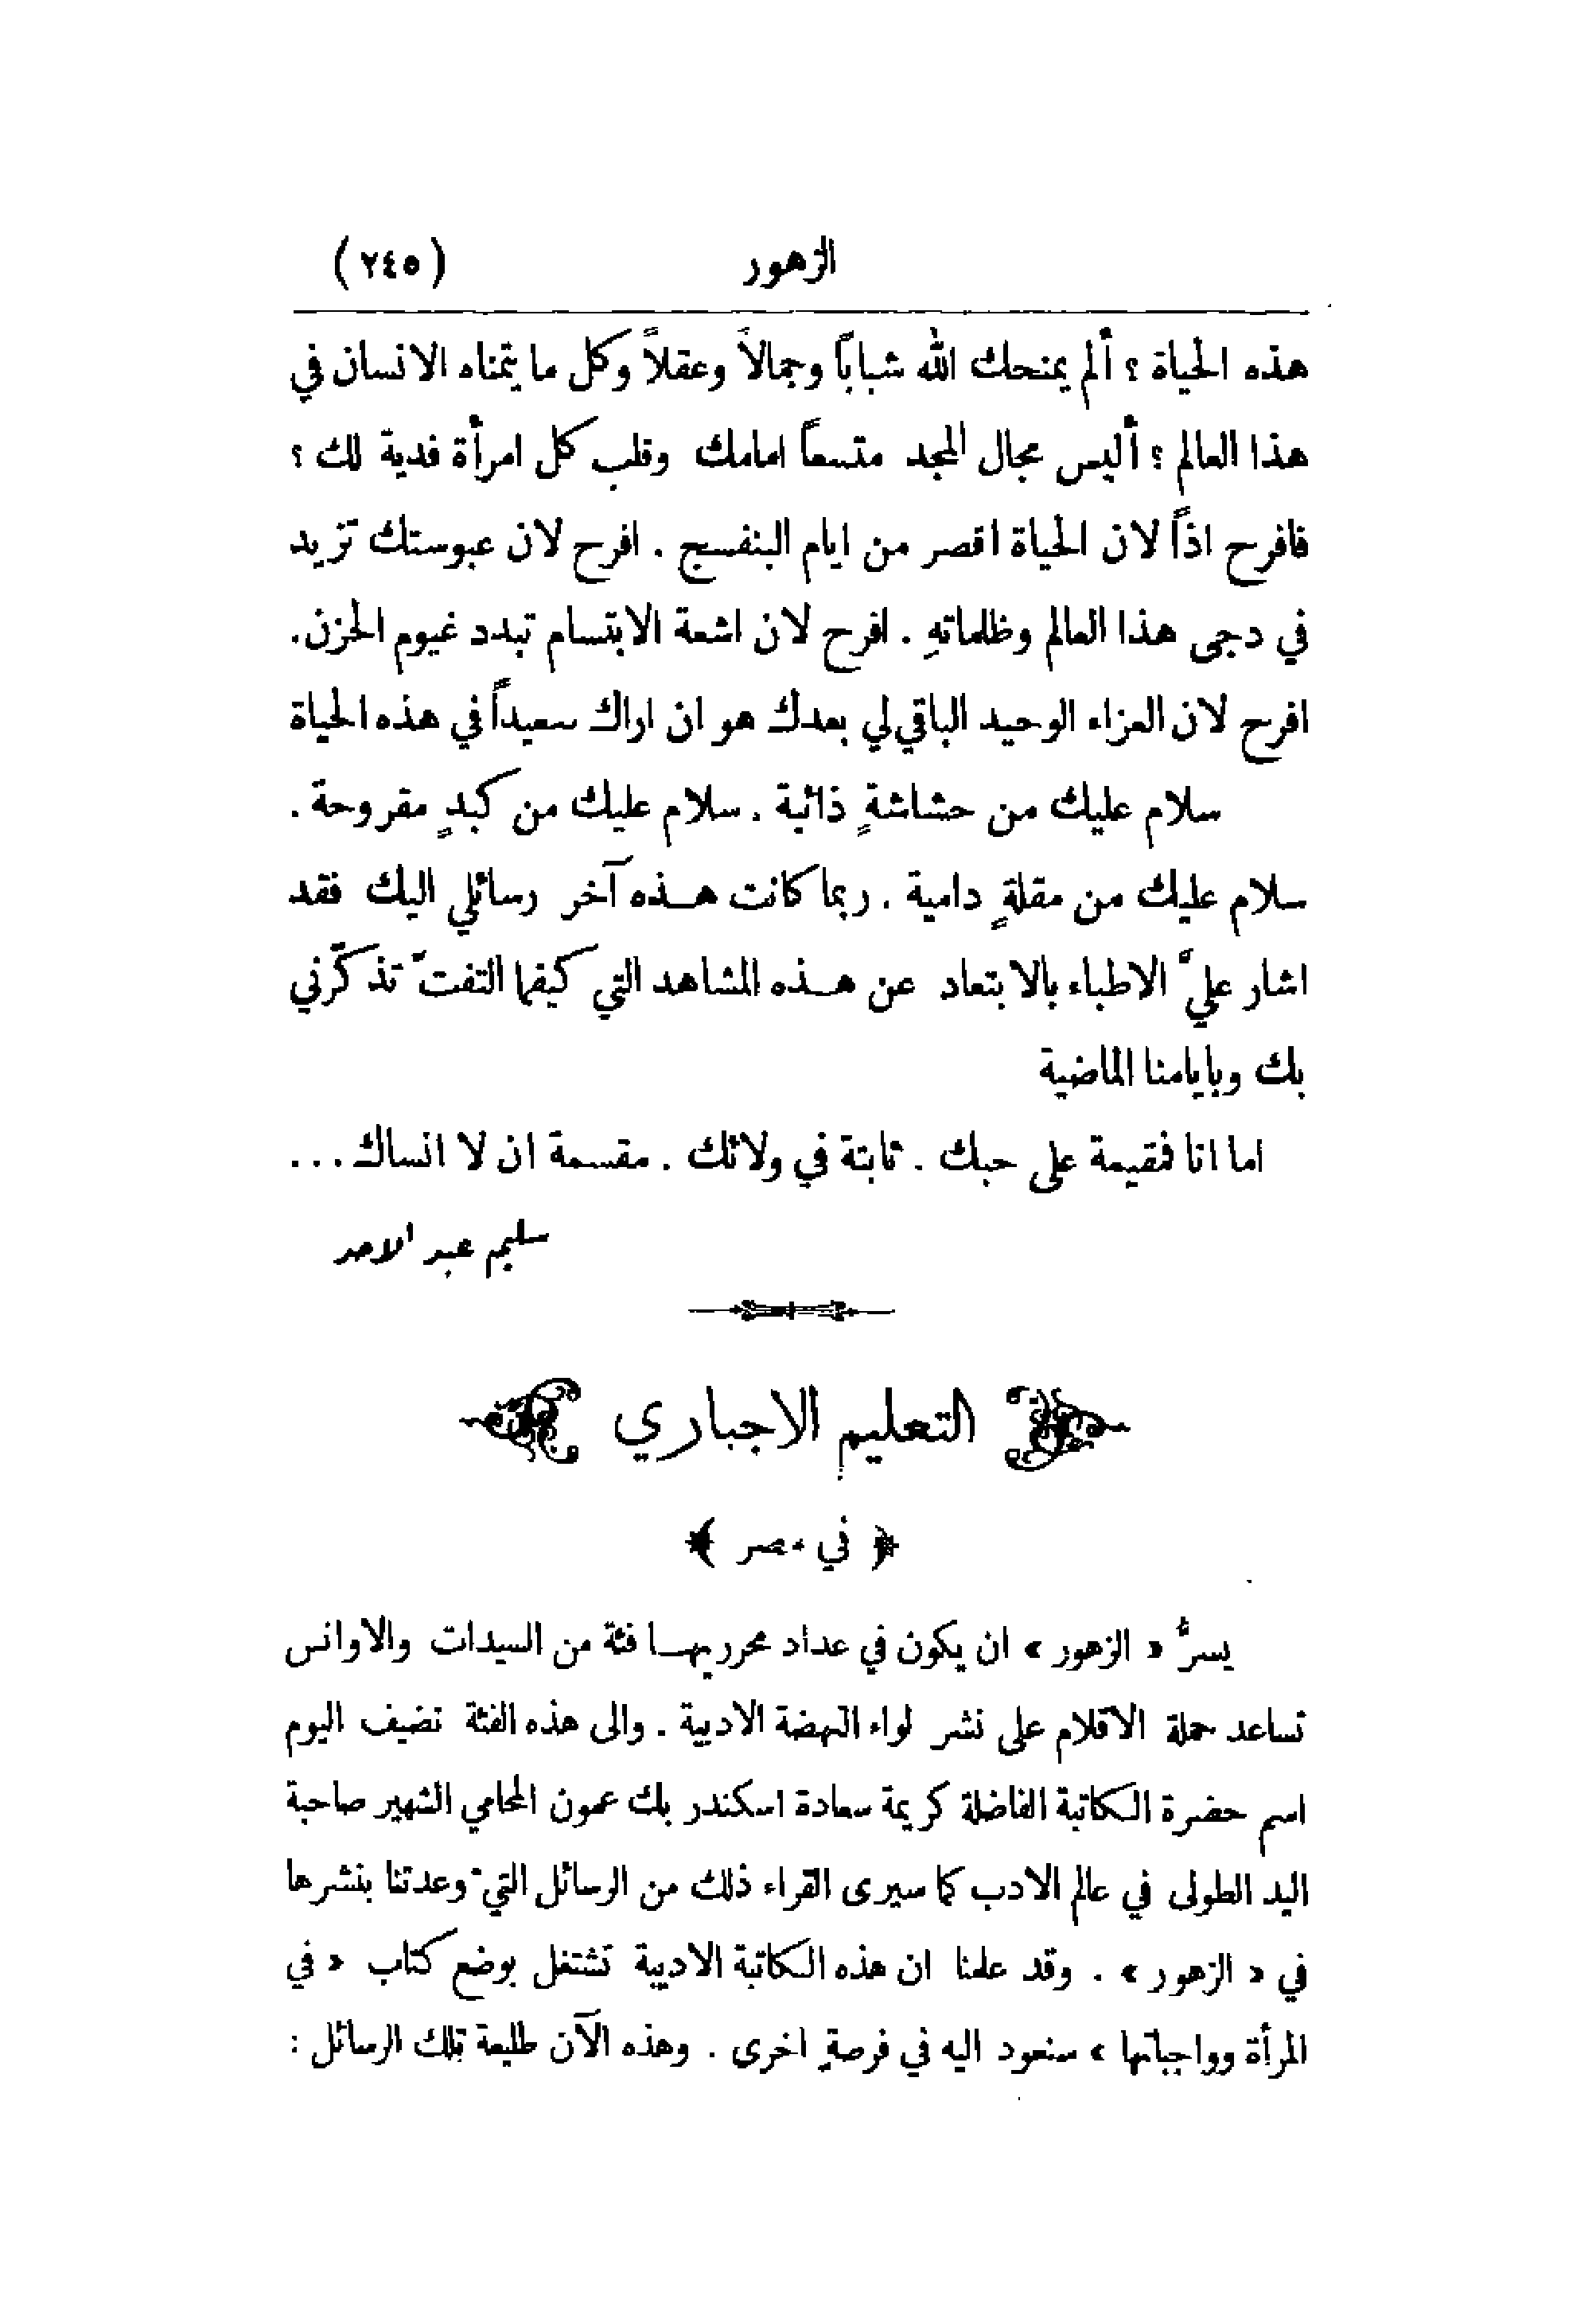 الزهور (٢٤٥)
هذه الحياة ؟ ألم يمنحك الله شباباً وجمالاً وعقلاً وكل ما يتمناه الانسان في
هذا العالم ؟ أليس مجال المجد متسعاً امامك وقلب كل امرأة فدية لك ؟
فافرح اذاً لان الحياة اقصر من ايام البنفسج . افرح لان عبوستك تزيد
في دجى هذا العالم وظلماتهِ . افرح لان اشعة الابتسام تبدد غيوم الحزن .
افرح لان العزاء الوحيد الباقي لي بعدك هو ان اراك سعيداً في هذه الحياة
سلام عليك من حشاشةٍ ذائبة . سلام عليك من كبدٍ مقروحة .
سلام عليك من مقلةٍ دامية . ربما كانت هـذه آخر رسائلي اليك فقد
اشار عليَّ الاطباء بالابتعاد عن هـذه المشاهد التي كيفما التفتّ تذكّرني
بك وبايامنا الماضية
اما انا فمقيمة على حبك . ثابتة في ولائك . مقسمة ان لا انساك ...
سليم عبد الاحد
التعليم الاجباري
﴿ في مصر ﴾
يسرُّ « الزهور » ان يكون في عداد محرريهـا فئة من السيدات والاوانس
تساعد حملة الاقلام على نشر لواء النهضة الادبية . والى هذه الفئة نضيف اليوم
اسم حضرة الكاتبة الفاضلة كريمة سعادة اسكندر بك عمون المحامي الشهير صاحبة
اليد الطولى في عالم الادب كما سيرى القراء ذلك من الرسائل التي وعدتنا بنشرها
في « الزهور » . وقد علمنا ان هذه الكاتبة الادبية تشتغل بوضع كتاب « في
المرأة وواجباتها » سنعود اليه في فرصةٍ اخرى . وهذه الآن طليعة تلك الرسائل :